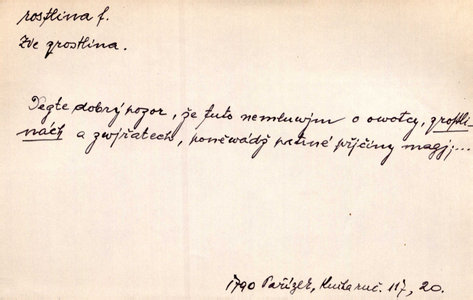 rostlina f.
Zde zrostlina.
Degte dobrý pozor, že tuto nemluwjm o owotcy, zrostli-
nách a zwjřatech, poněwádž patrné přjčiny magj;...
1790 Pařízek, 117, 20.